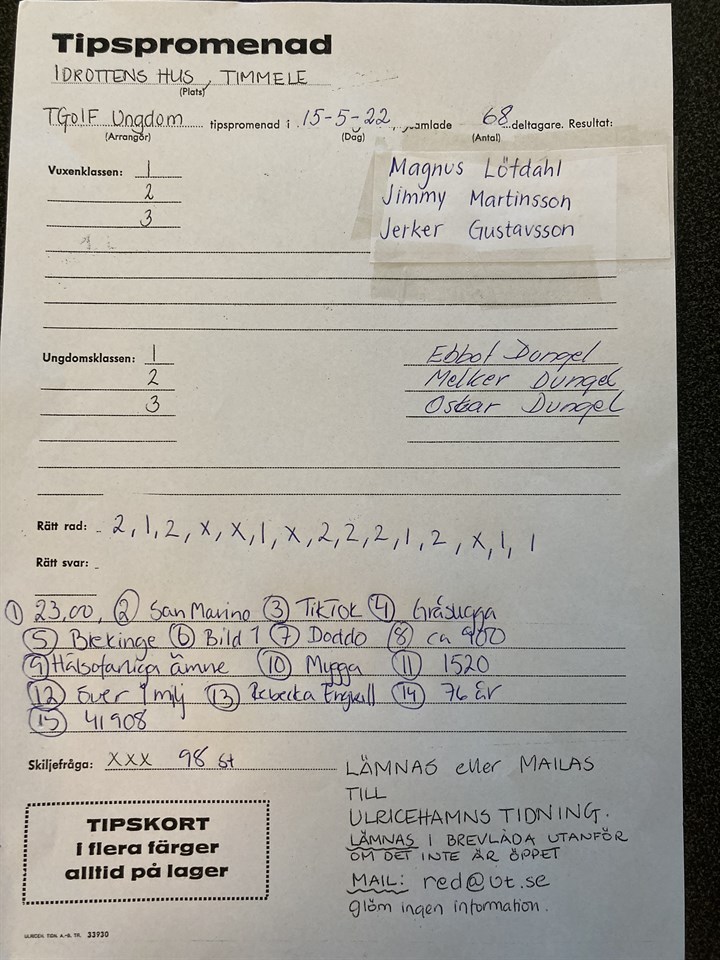 Tipspromenad
IDROTTENS HUS, TIMMELE
(Plats)
TGOIF Ungdom tipspromenad i 15-5-22 samlade 68 deltagare. Resultat:
(Arrangör) (Dag) (Antal)
Vuxenklassen: 1 Magnus Löfdahl
2 Jimmy Martinsson
3 Jerker Gustavsson
Ungdomsklassen: 1 Ebbot Dungel
2 Melker Dungel
3 Oskar Dungel
Rätt rad: 2, 1, 2, X, X, 1, X, 2, 2, 2, 1, 2, X, 1, 1
Rätt svar:
① 23,00, ② San Marino ③ TikTok ④ Gråsugga
⑤ Blekinge ⑥ Bild 1 ⑦ Doddo ⑧ ca 900
⑨ Hälsofarliga ämne ⑩ Mygga ⑪ 1520
⑫ över 9 milj ⑬ Rebecka Engvall ⑭ 76 år
⑮ 41908
Skiljefråga: XXX 98 st
LÄMNAS eller MAILAS
TILL
ULRICEHAMNS TIDNING.
LÄMNAS I BREVLÅDA UTANFÖR
OM DET INTE ÄR ÖPPET
MAIL: red@ut.se
glöm ingen information.
TIPSKORT
i flera färger
alltid på lager
ULRICEH. TIDN. A.-B. TR. 33930